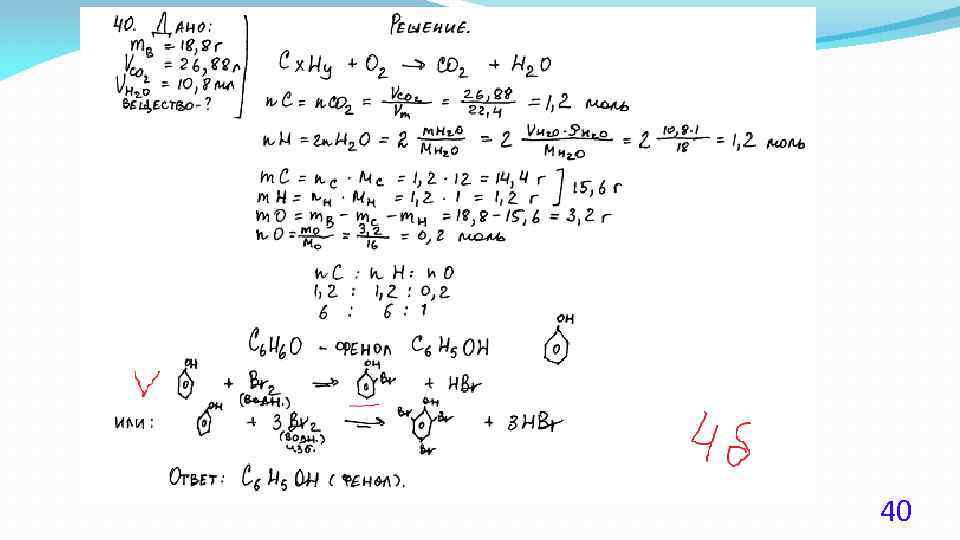 40. Дано:
mв = 18,8 г
VCO2 = 26,88 л
VH2O = 10,8 мл
вещество-?
Решение.
CxHy + O2 → CO2 + H2O
nC = nCO2 = VCO2/Vm = 26,88/22,4 = 1,2 моль
nH = 2nH2O = 2 mH2O/MH2O = 2 VH2O·ρH2O/MH2O = 2 10,8·1/18 = 1,2 моль
mC = nC · MC = 1,2 · 12 = 14,4 г ] 15,6 г
mH = nH · MH = 1,2 · 1 = 1,2 г
mO = mв - mC - mH = 18,8 - 15,6 = 3,2 г
nO = mO/MO = 3,2/16 = 0,2 моль
nC : nH : nO
1,2 : 1,2 : 0,2
6 : 6 : 1
C6H6O - фенол C6H5OH
OH
V OH + Br2 (водн.) ⇒ OH Br + HBr
или: OH + 3Br2 (водн.) изб. ⇒ OH Br Br Br + 3HBr
4б
Ответ: C6H5OH (фенол).
40